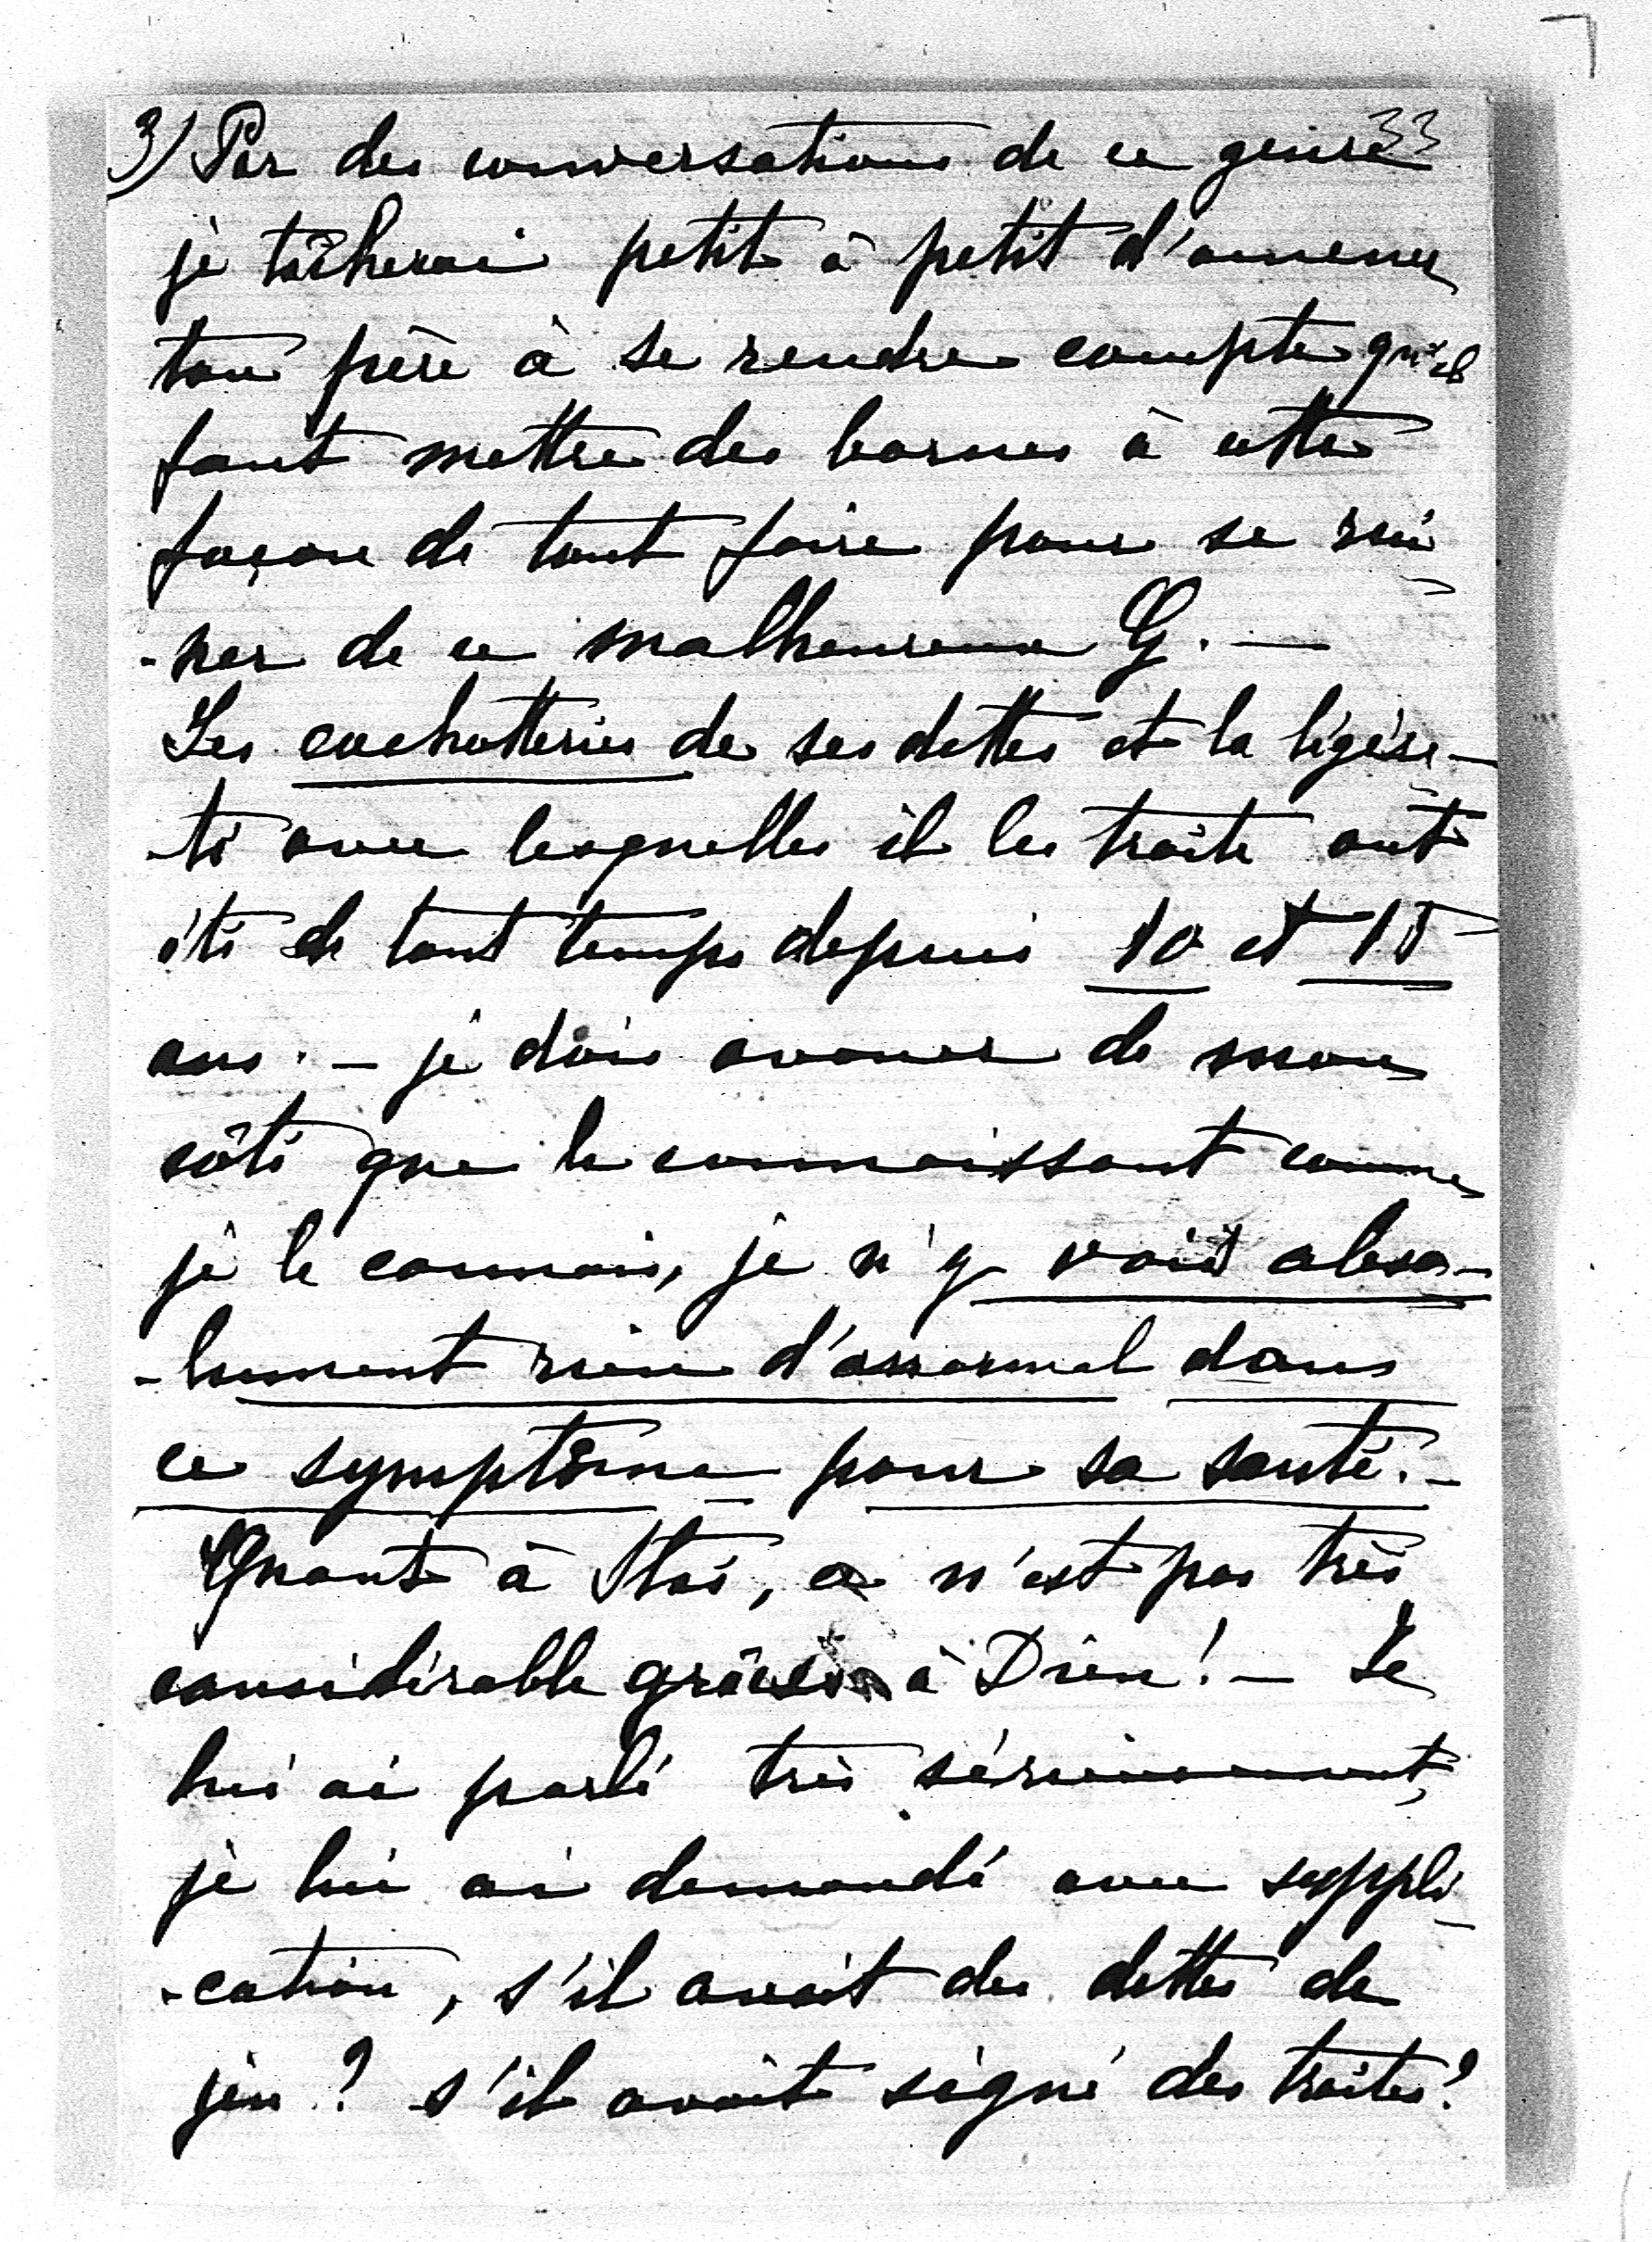 3) Par des conversations de ce genre 33
je tâcherai petit à petit d'amener
ton père à se rendre compte qu'il
faut mettre des bornes à cette
façon de tout faire pour se rui-
-ner de ce malheureux G. —
Les cachotteries de ses dettes et la légère-
-té avec lesquelles il les traite ont
été de tout temps depuis 10 et 15
ans. — je dois avouer de mon
côté que le connaissant comme
je le connais, je n'y vois abso-
-lument rien d'anormal dans
ce symptôme pour sa santé. —
Quant à Staï, ce n'est pas très
considérable grâces à Dieu! — Je
lui ai parlé très sérieusement,
je lui ai demandé avec suppli-
-cation, s'il avait des dettes de
jeu? s'il avait signé des traites?